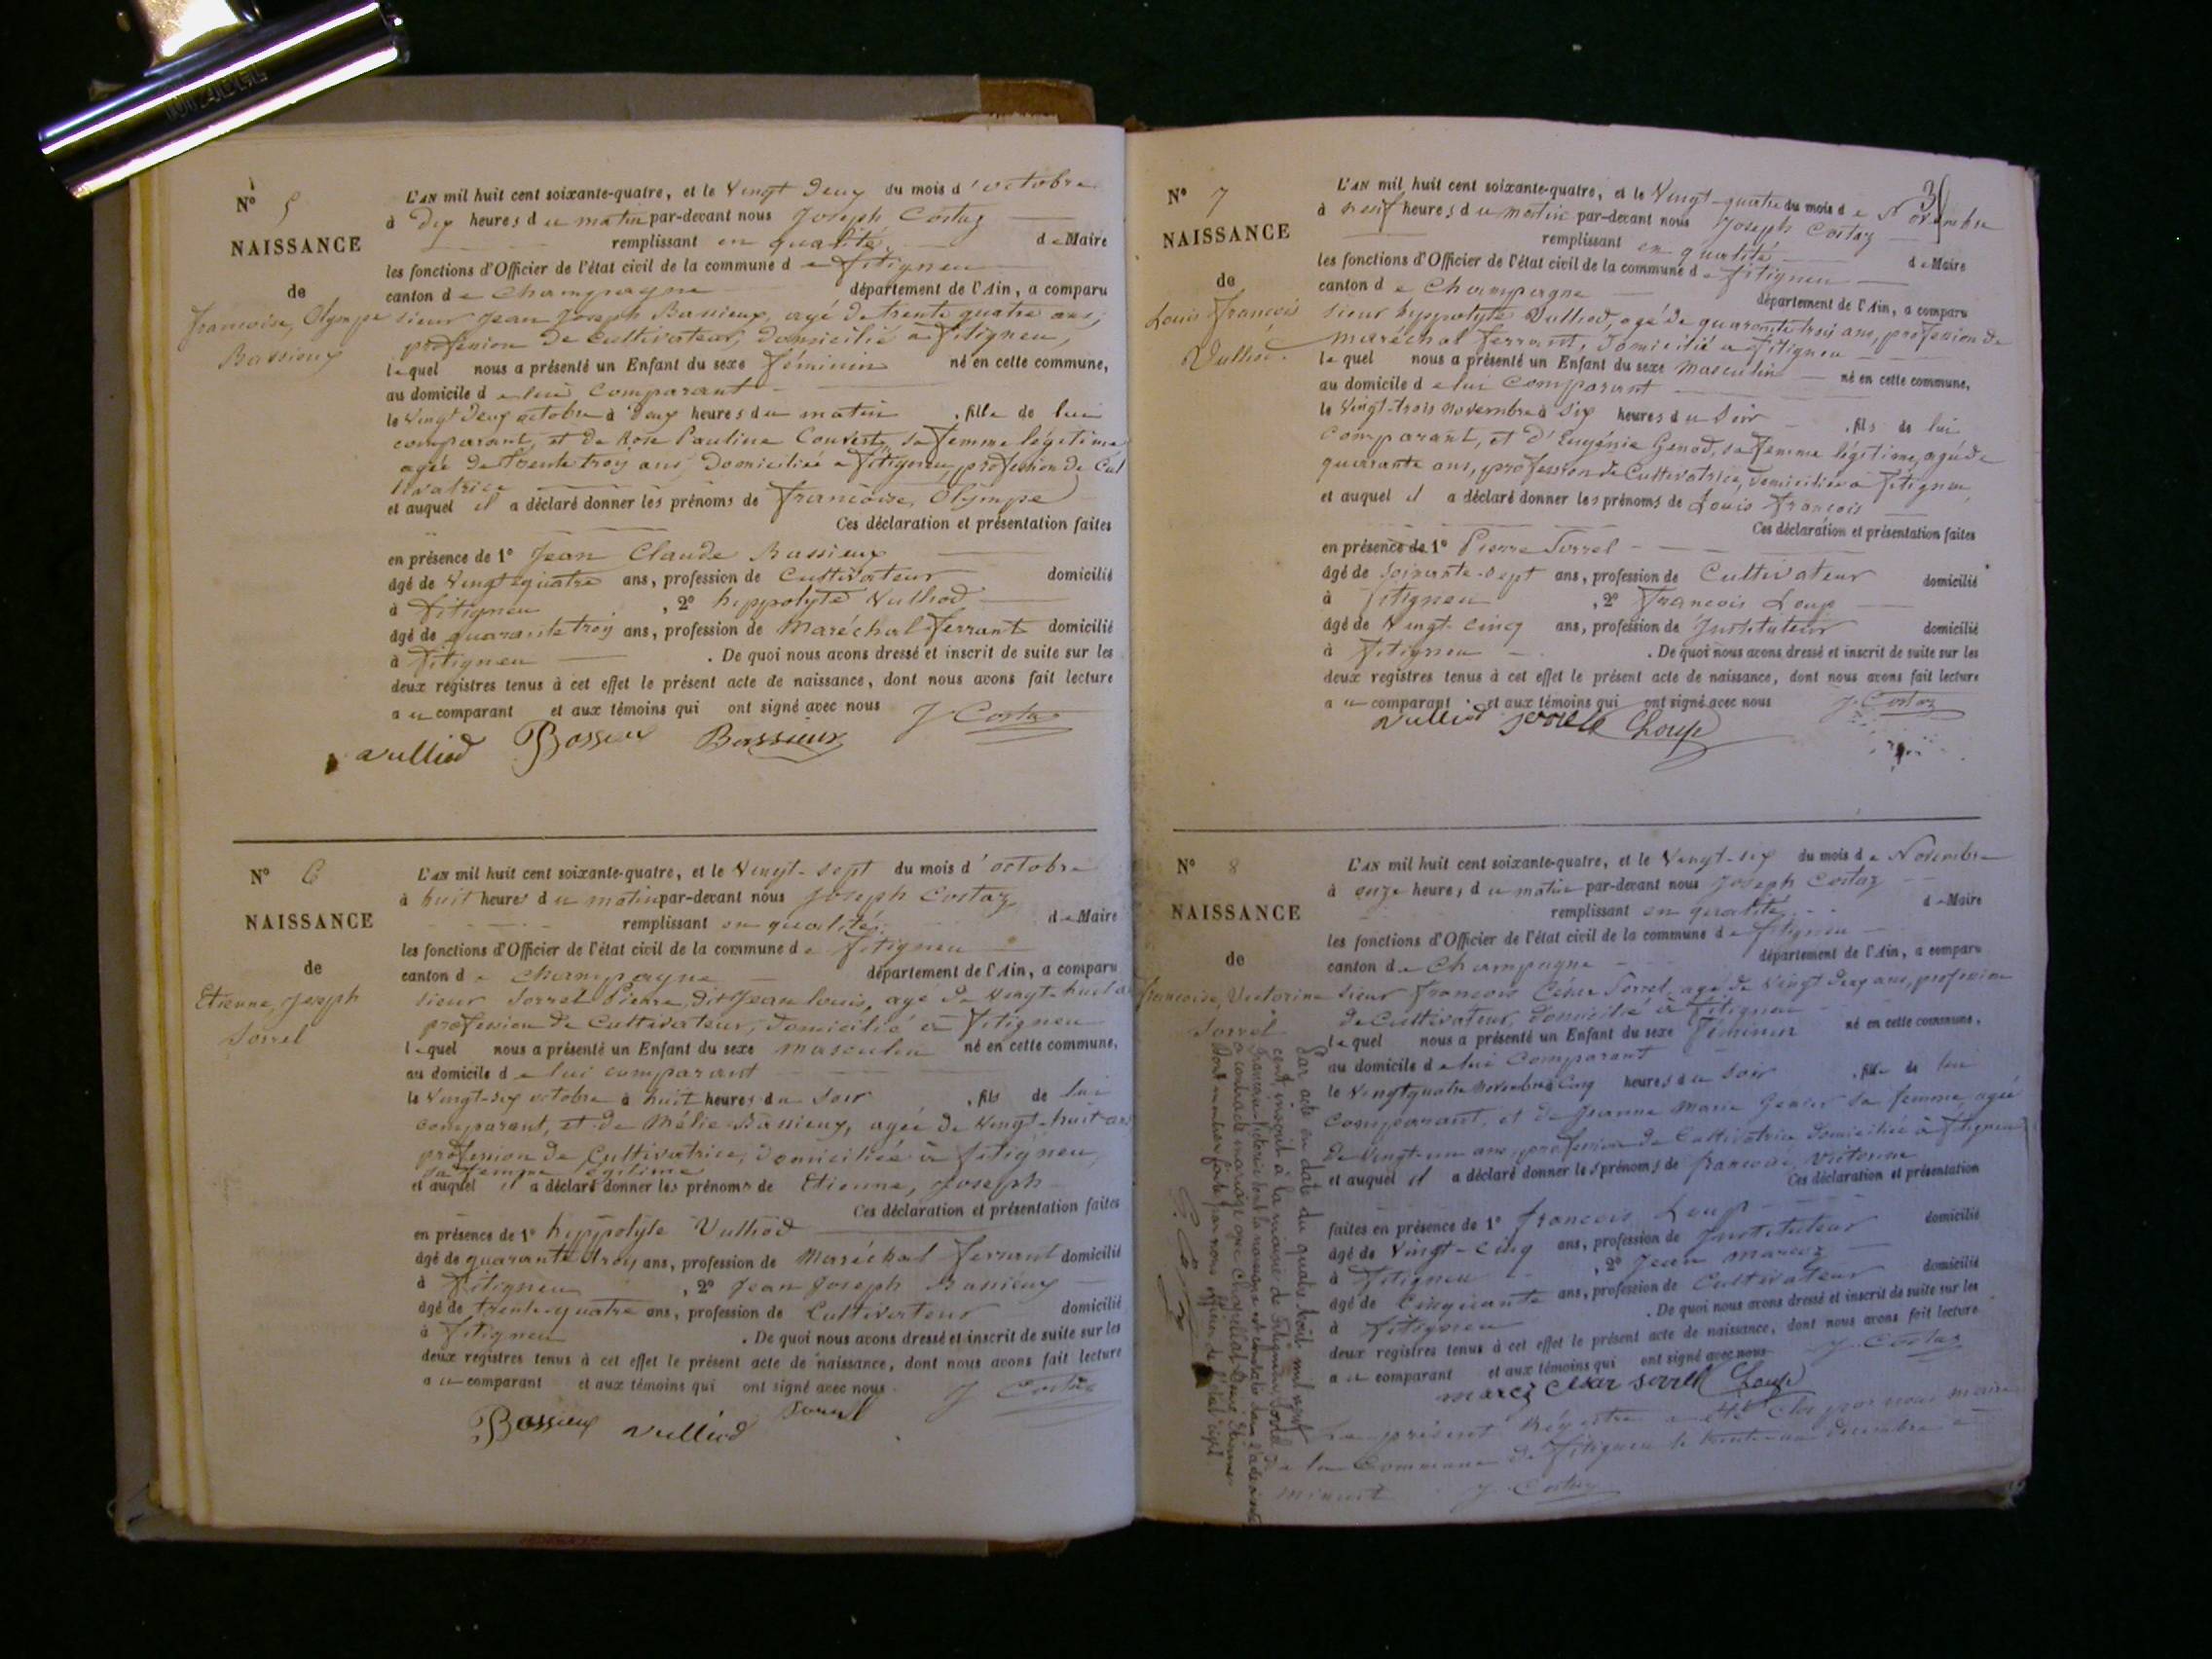 N° 5
NAISSANCE
de
Francoise, Olympe
Bassieux
L'AN mil huit cent soixante-quatre, et le Vingt Deux du mois d'octobre
à Dix heures du matin par-devant nous Joseph Costaz
remplissant en qualité de Maire
les fonctions d'Officier de l'état civil de la commune de fitigneu
canton de Champagne département de l'Ain, a comparu
sieur Jean Joseph Bassieux, agé de trente quatre ans,
profession de Cultivateur, domicilié à fitigneu,
lequel nous a présenté un Enfant du sexe féminin né en cette commune,
au domicile de lui comparant
le Vingt Deux octobre à Deux heures du matin, fille de lui
comparant, et de Rose Pauline Convert, sa femme légitime
agée de trente trois ans, domiciliée a fitigneu, profession de Cul
tivatrice
et auquel il a déclaré donner les prénoms de francoise, Olympe
Ces déclaration et présentation faites
en présence de 1° Jean Claude Bassieux
âgé de Vingt quatre ans, profession de Cultivateur domicilié
à fitigneu, 2° hyppolyte Vulliod
âgé de quarante trois ans, profession de Maréchal ferrant domicilié
à fitigneu. De quoi nous avons dressé et inscrit de suite sur les
deux registres tenus à cet effet le présent acte de naissance, dont nous avons fait lecture
au comparant et aux témoins qui ont signé avec nous J Costaz
Vulliod Bassieu Bassieux
N° 6
NAISSANCE
de
Etienne, Joseph
Sorrel
L'AN mil huit cent soixante-quatre, et le Vingt-sept du mois d'octobre
à huit heures du matin par-devant nous Joseph Costaz
remplissant en qualité de Maire
les fonctions d'Officier de l'état civil de la commune de fitigneu
canton de Champagne département de l'Ain, a comparu
sieur Sorrel Pierre dit Jean louis, agé de Vingt-huit a
profession de Cultivateur, domicilié à fitigneu
lequel nous a présenté un Enfant du sexe masculin né en cette commune,
au domicile de lui comparant
le Vingt-six octobre à huit heures du soir, fils de lui
comparant, et de Mélie Bassieux, agée de Vingt-huit ans
profession de Cultivatrice, domiciliée à fitigneu,
sa femme légitime
et auquel il a déclaré donner les prénoms de Etienne, Joseph
Ces déclaration et présentation faites
en présence de 1° hyppolyte Vulliod
âgé de quarante trois ans, profession de Maréchal ferrant domicilié
à fitigneu, 2° Jean Joseph Bassieux
âgé de trente quatre ans, profession de Cultivateur domicilié
à fitigneu. De quoi nous avons dressé et inscrit de suite sur les
deux registres tenus à cet effet le présent acte de naissance, dont nous avons fait lecture
au comparant et aux témoins qui ont signé avec nous J Costaz
Bassieux Vulliod Sorrel
N° 7
NAISSANCE
de
Louis francois
Vulliod.
L'AN mil huit cent soixante-quatre, et le Vingt-quatre du mois de Novembre
à neuf heures du matin par-devant nous Joseph Costaz
remplissant en qualité de Maire
les fonctions d'Officier de l'état civil de la commune de fitigneu
canton de Champagne département de l'Ain, a comparu
sieur hyppolyte Vulliod, agé de quarante trois ans, profession de
maréchal ferrant, domicilié a fitigneu
lequel nous a présenté un Enfant du sexe masculin né en cette commune,
au domicile de lui comparant
le Vingt-trois novembre à Six heures du Soir, fils de lui
comparant, et d'Eugénie Genod, sa femme légitime, agée de
quarante ans, profession de Cultivatrice, domiciliée à fitigneu
et auquel il a déclaré donner les prénoms de Louis francois
Ces déclaration et présentation faites
en présence de 1° Pierre Sorrel
âgé de soixante-sept ans, profession de Cultivateur domicilié
à fitigneu, 2° francois Loup
âgé de Vingt-cinq ans, profession de Instituteur domicilié
à fitigneu. De quoi nous avons dressé et inscrit de suite sur les
deux registres tenus à cet effet le présent acte de naissance, dont nous avons fait lecture
au comparant et aux témoins qui ont signé avec nous J. Costaz
Vulliod Sorrel Loup
N° 8
NAISSANCE
de
francoise, Victorine
Sorrel
L'AN mil huit cent soixante-quatre, et le Vingt-six du mois de Novembre
à onze heures du matin par-devant nous Joseph Costaz
remplissant en qualité de Maire
les fonctions d'Officier de l'état civil de la commune de fitigneu
canton de Champagne département de l'Ain, a comparu
sieur francois César Sorrel, agé de Vingt Deux ans, profession
de Cultivateur, domicilié à fitigneu
lequel nous a présenté un Enfant du sexe féminin né en cette commune,
au domicile de lui Comparant
le Vingt quatre Novembre à Cinq heures du soir, fille de lui
comparant, et de Jeanne Marie sa femme agée
de Vingt-un ans, profession de Cultivatrice domiciliée à fitigneu
et auquel il a déclaré donner les prénoms de francoise, Victorine
Ces déclaration et présentation
faites en présence de 1° francois Loup
âgé de Vingt-cinq ans, profession de Instituteur domicilié
à fitigneu, 2° Jean
âgé de cinquante ans, profession de Cultivateur domicilié
à fitigneu. De quoi nous avons dressé et inscrit de suite sur les
deux registres tenus à cet effet le présent acte de naissance, dont nous avons fait lecture
au comparant et aux témoins qui ont signé avec nous J. Costaz
César Sorrel Loup
Le présent Régistre a été Clos par nous maire
de la Commune de fitigneu le trente un décembre à
minuit J. Costaz
Par acte en date du quatre Août mil neuf
cent, inscrit à la mairie de fitigneu, Sorrel
dont la naissance est constatée dans l'acte ci contre
a contracté mariage avec
Dont mention faite par nous officier de l'état civil